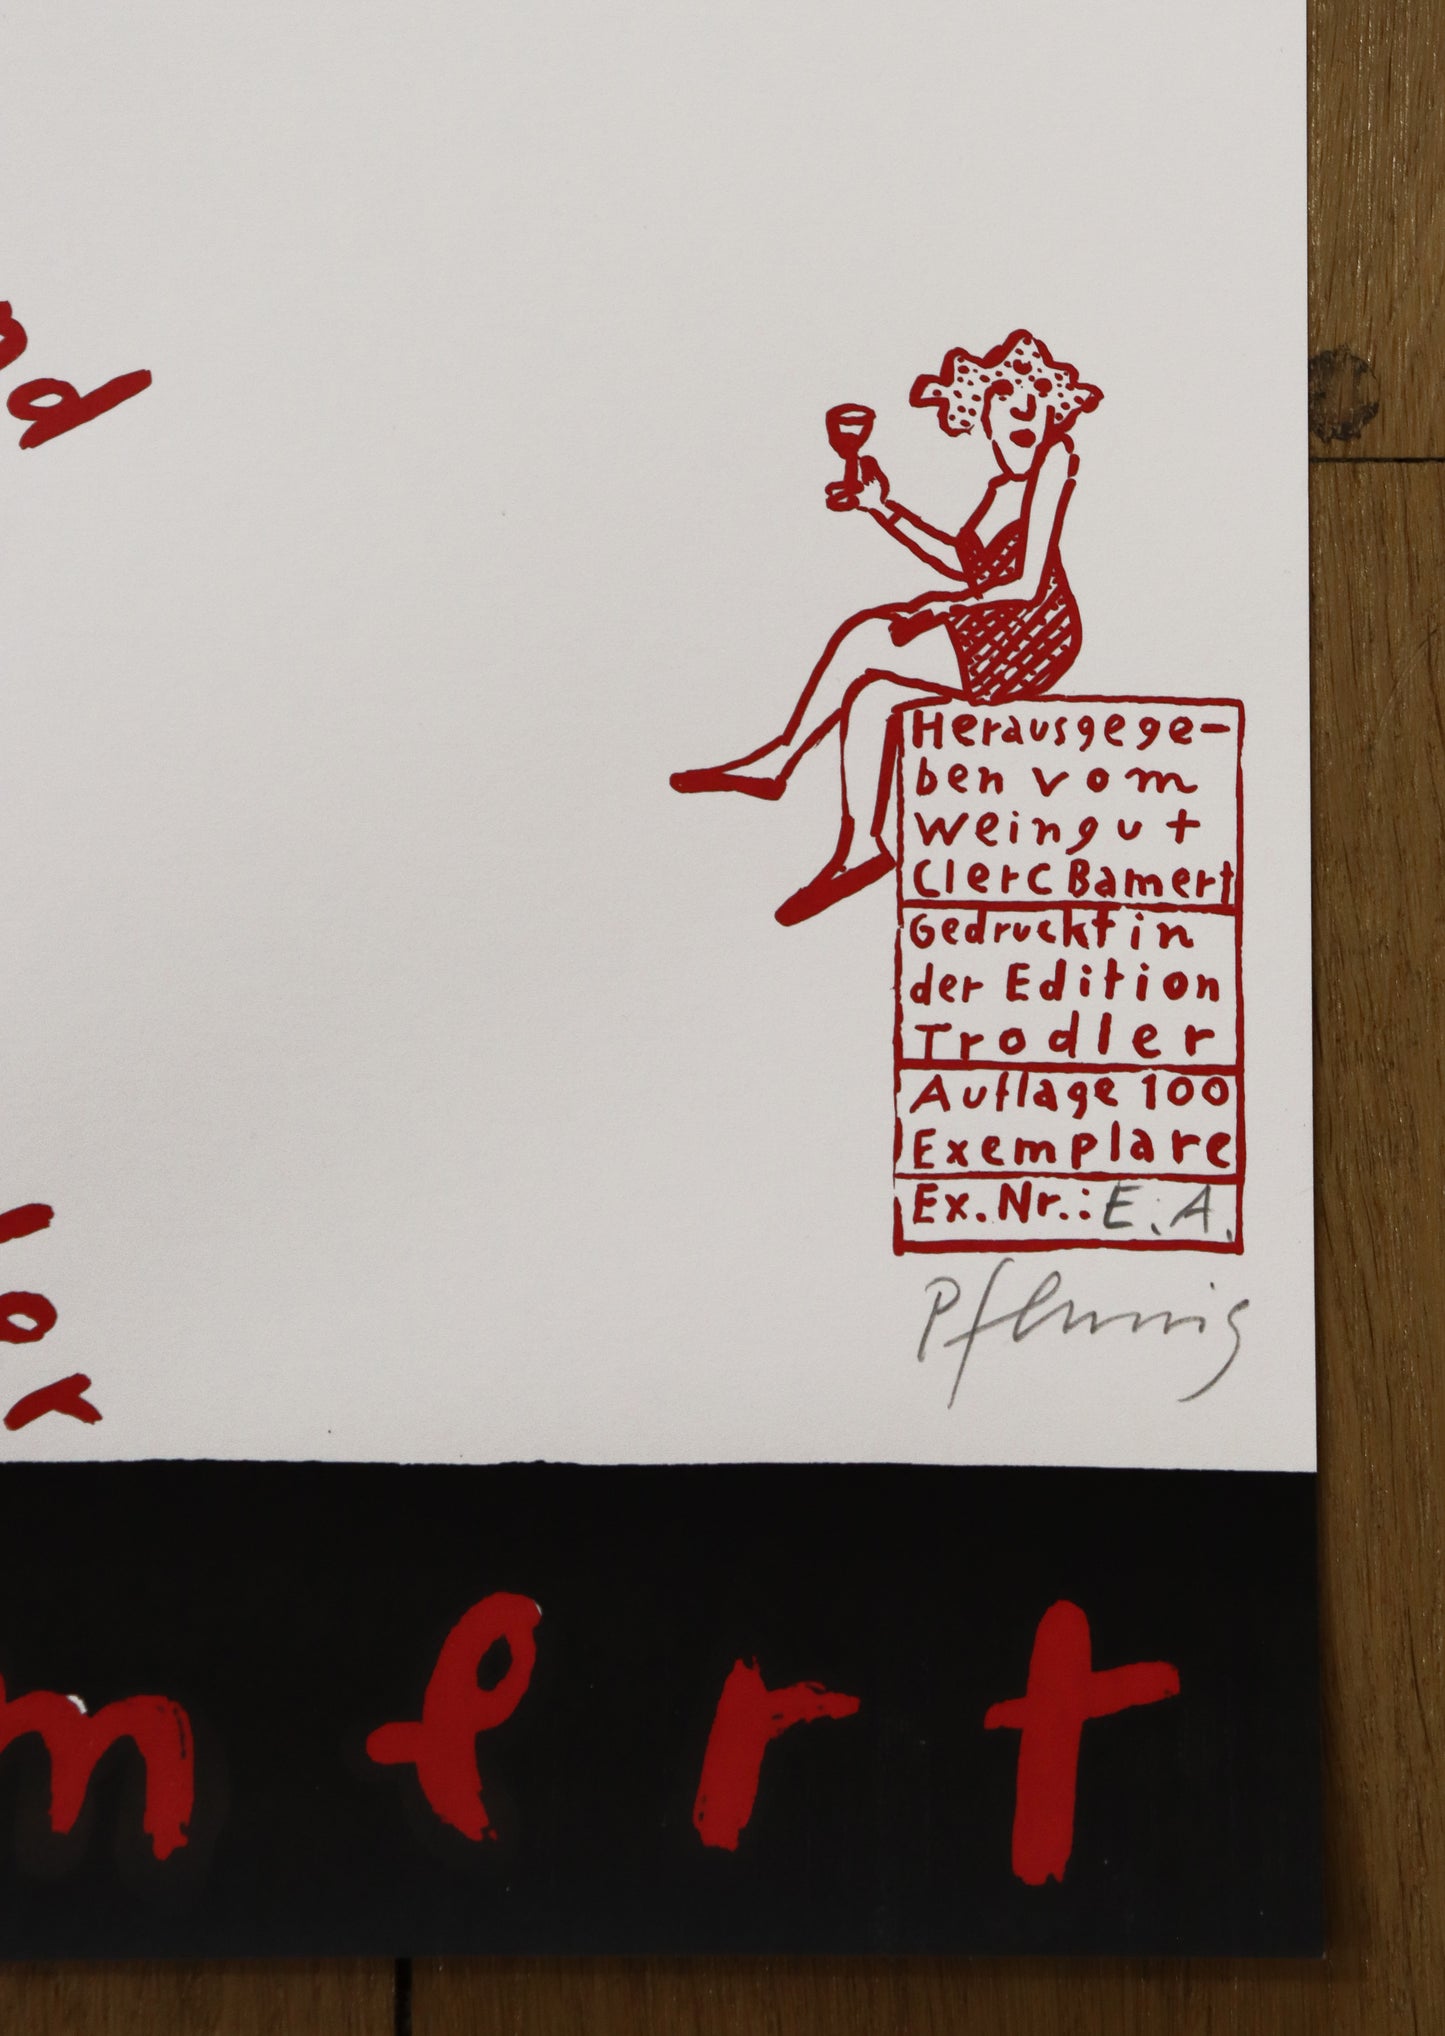 d
Herausgege-
ben vom
Weingut
Clerc Bamert
Gedruckt in
der Edition
Trodler
Auflage 100
Exemplare
Ex. Nr.: E. A.
or
mert